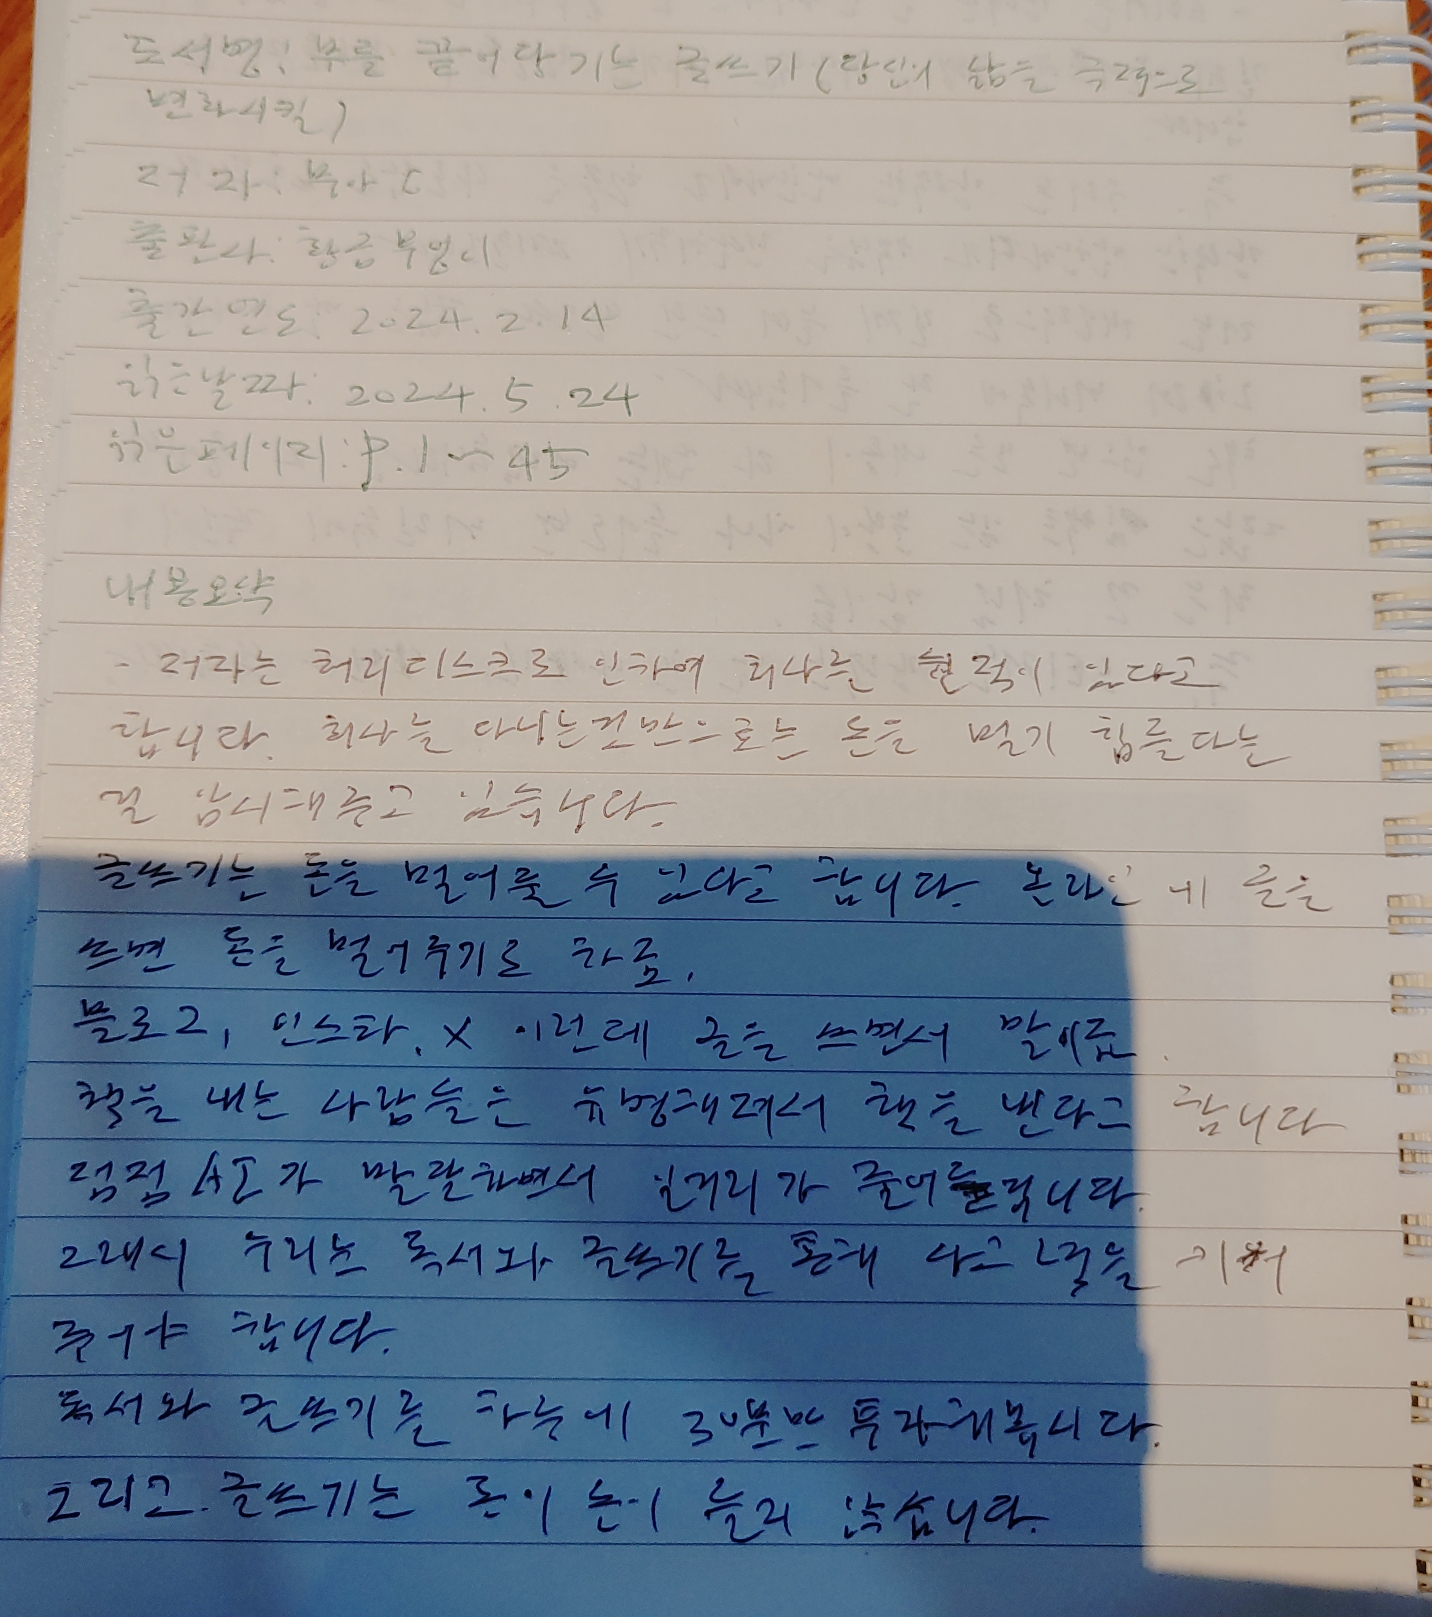 도서명: 부를 끌어당기는 글쓰기 (당신의 삶을 극적으로
변화시킬)
저자: 부아C
출판사: 황금부엉이
출간연도: 2024. 2. 14
읽은날짜: 2024. 5. 24
읽은페이지: p. 1 ~ 45
내용요약
- 저자는 허리디스크로 인하여 회사를 쉰적이 있다고
합니다. 회사를 다니는것만으로는 돈을 벌기 힘들다는
걸 암시해주고 있습니다.
글쓰기는 돈을 벌어줄 수 있다고 합니다. 온라인에 글을
쓰면 돈을 벌어주기도 하죠.
블로그, 인스타, X 이런데 글을 쓰면서 말이죠.
책을 내는 사람들은 유명해져서 책을 낸다고 합니다
점점 AI가 발달하면서 일거리가 줄어들 것입니다.
그래서 우리는 독서와 글쓰기를 통해 사고력을 키워
주어야 합니다.
독서와 글쓰기를 하는데 30분만 투자해봅시다.
그리고 글쓰기는 돈이 들지 않습니다.